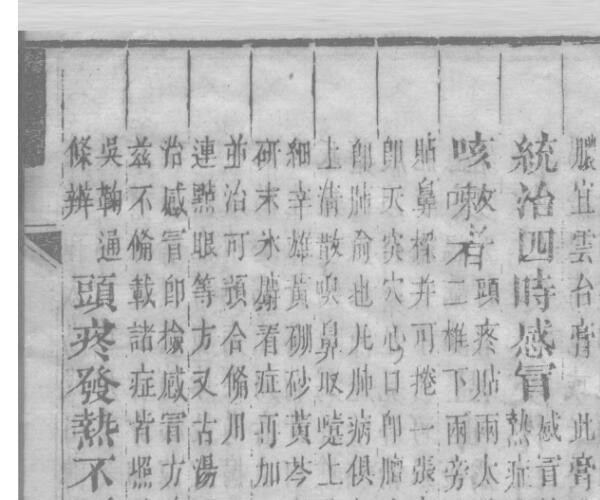 膿宜雲台膏 此膏
統治四時感冒
感冒
熱症
咳嗽者
頭疼貼兩太
二椎下兩旁
貼鼻樑并可掩一張
即天突穴心口即膻
即肺俞也凡肺病俱
上清散嗅鼻取嚏上
細辛雄黃硼砂黃芩
研末氷麝看症再加
並治可預合備用
連點眼等方又古湯
治感冒即檢感冒方
茲不備載諸症皆照
吳鞠通
條辨
頭疼發熱不